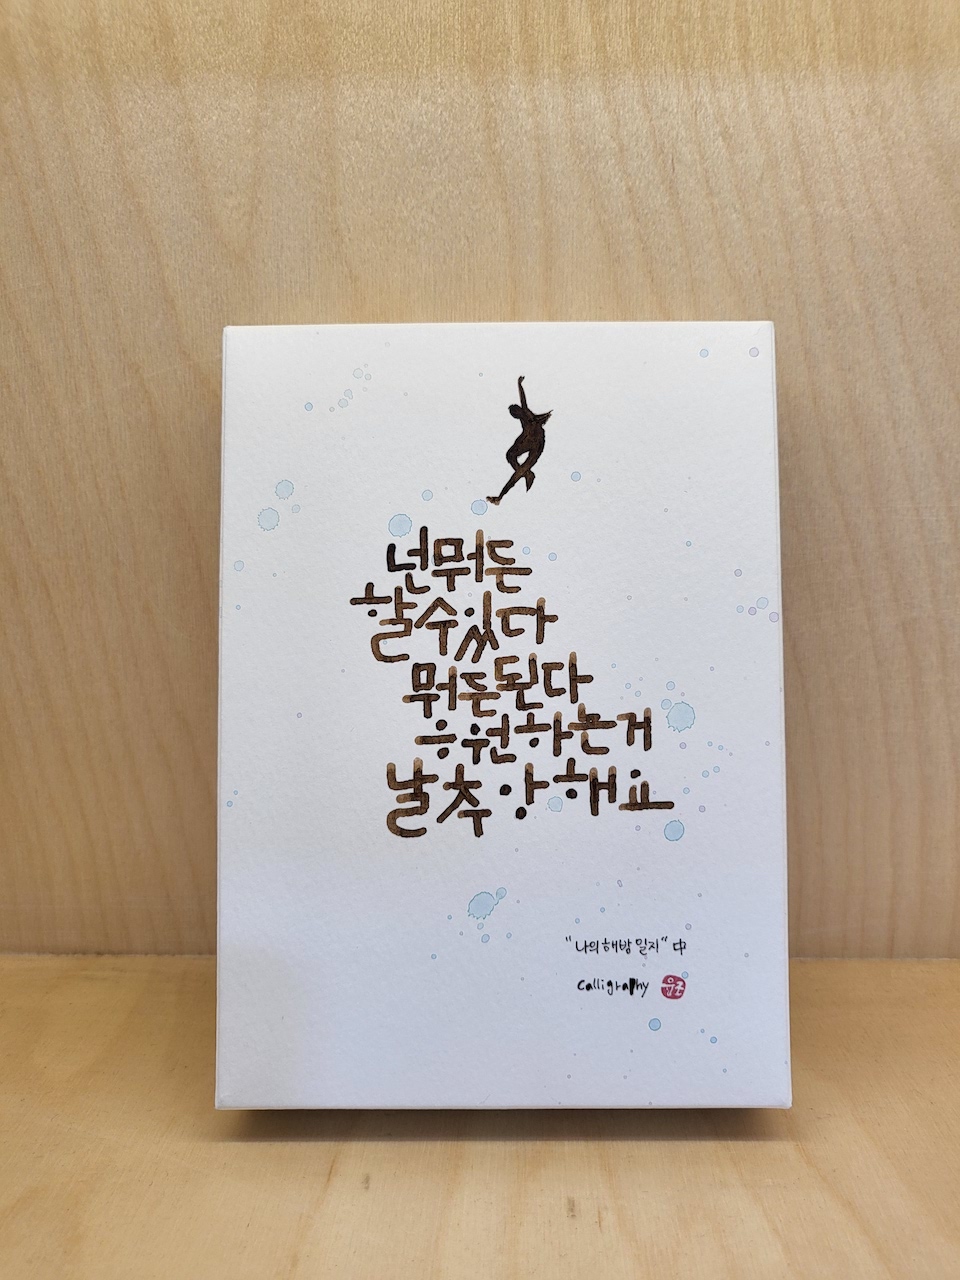 넌 뭐든
할 수 있다
뭐든 된다
응원하는 거
날 추앙해요
"나의 해방일지" 中
Calligraphy